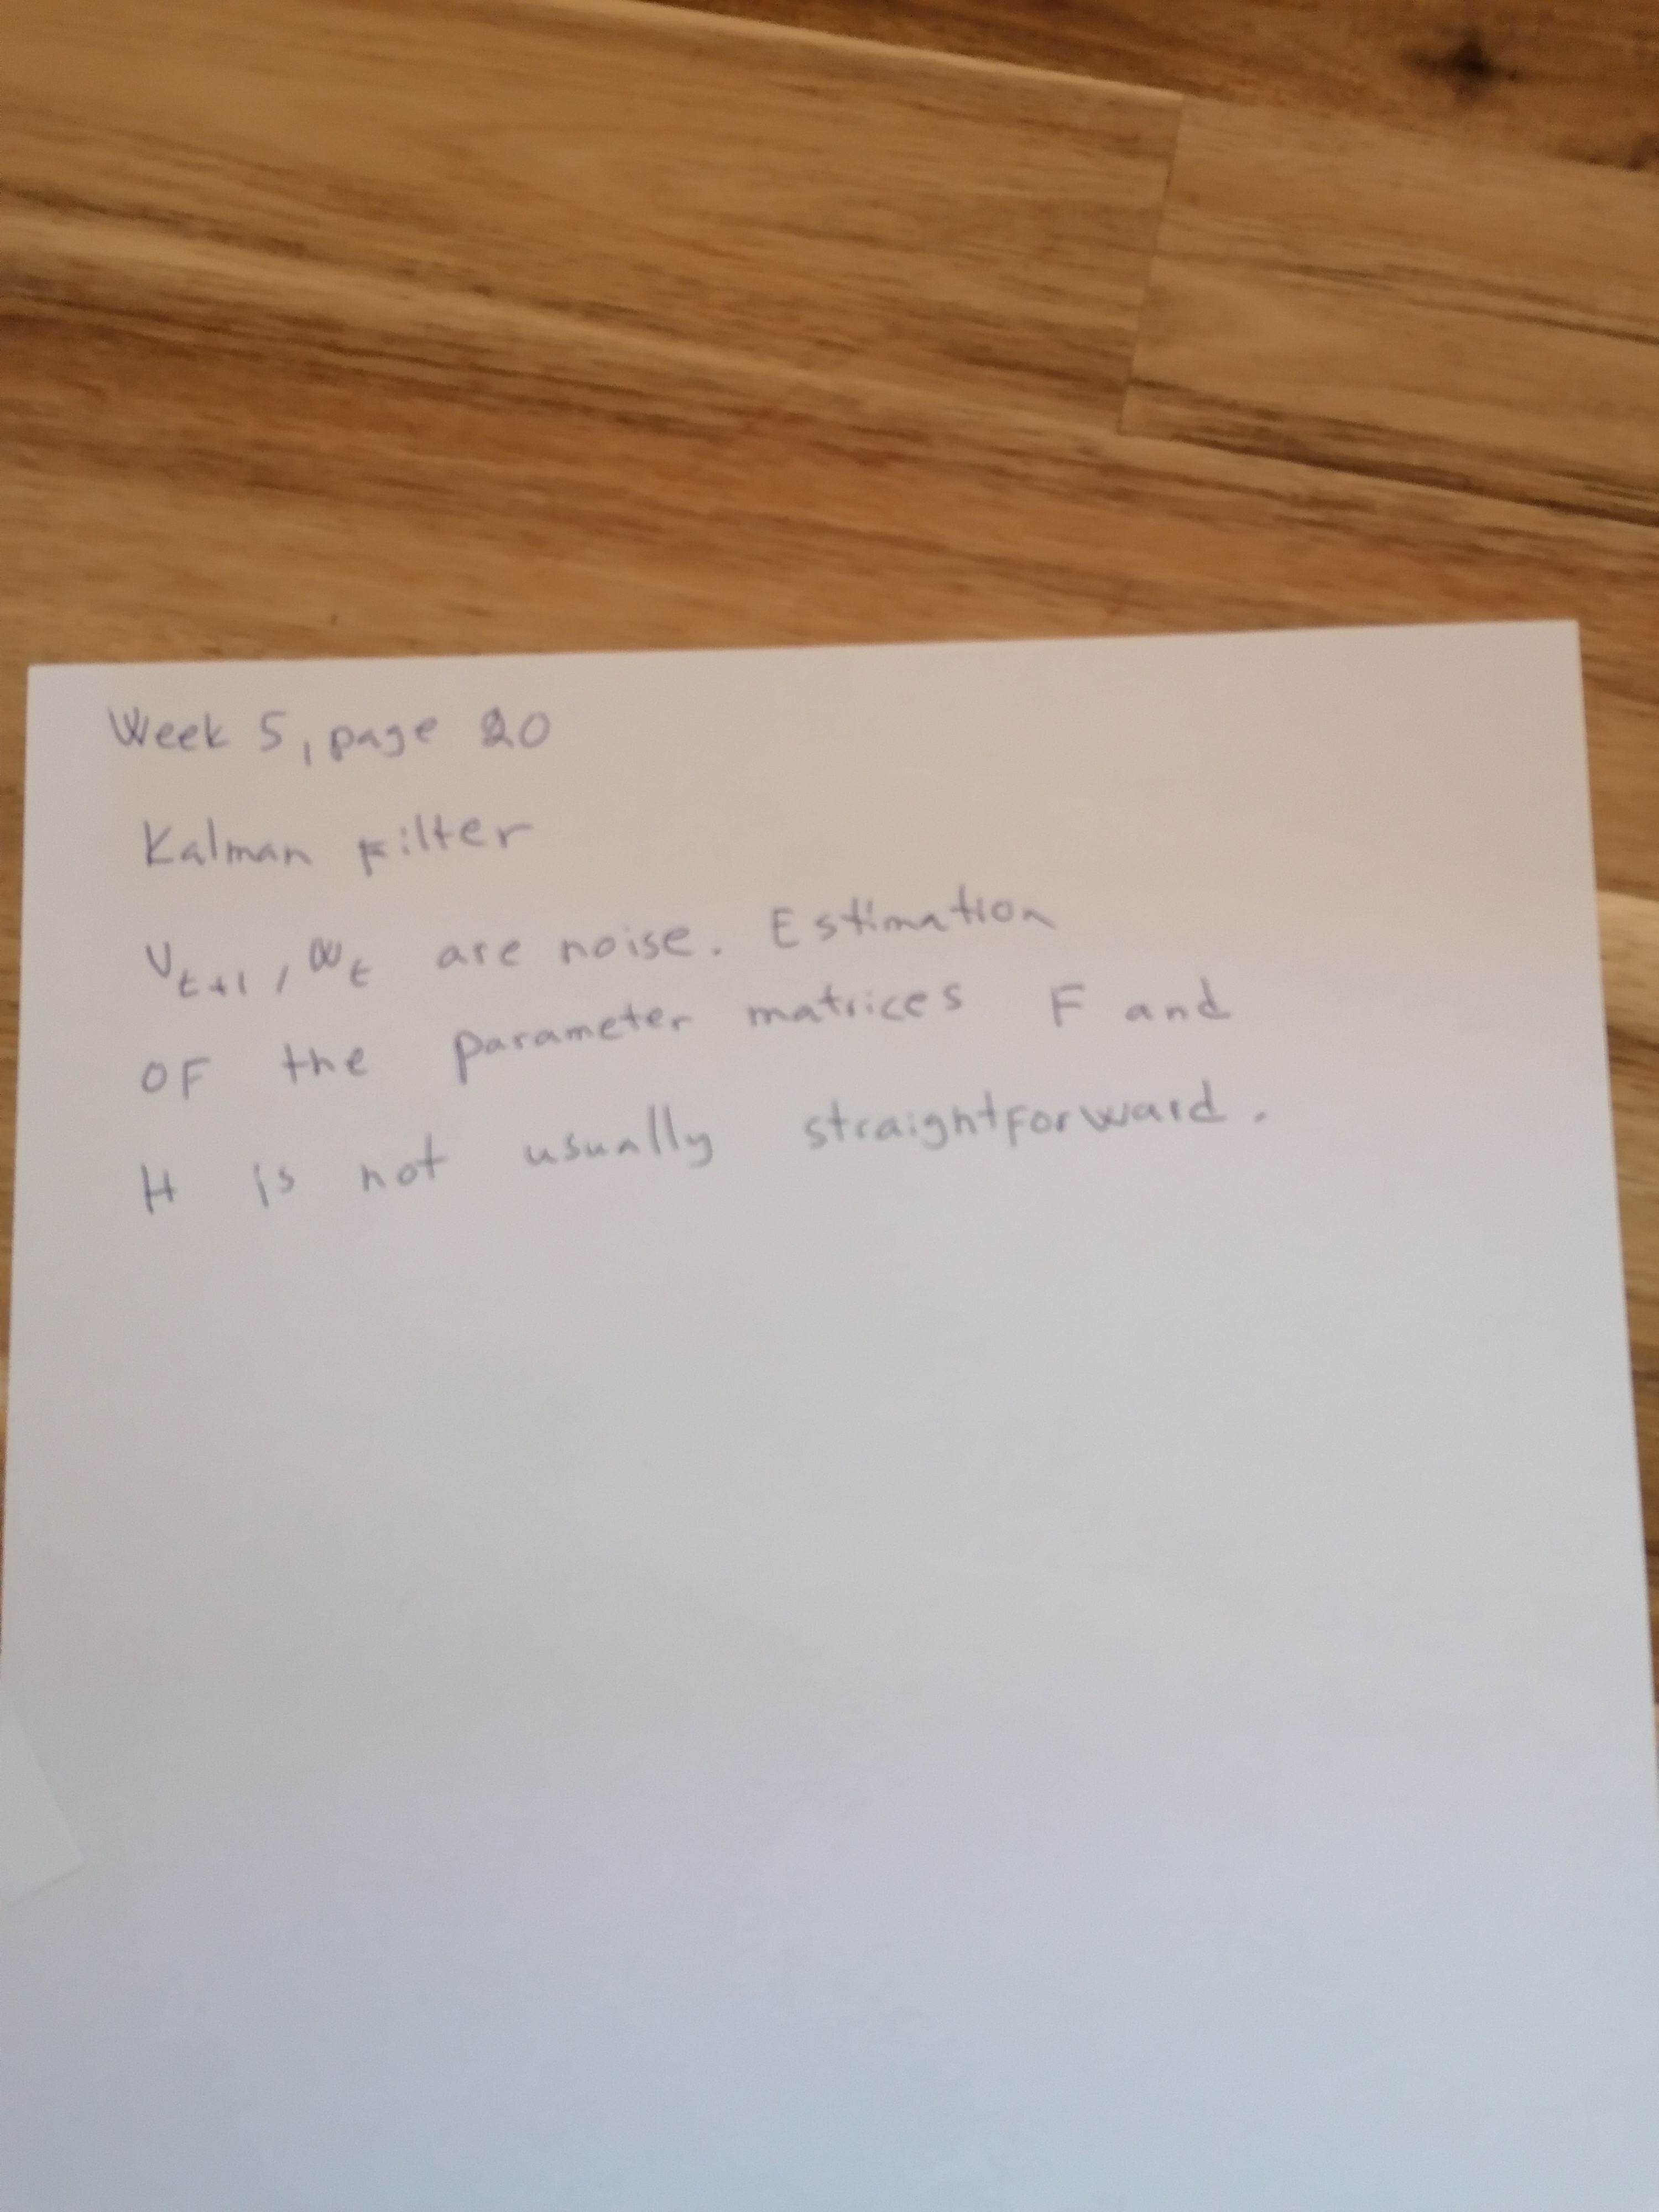 Week 5, page 20
Kalman Filter
V_{t+1}, W_t are noise. Estimation
OF the parameter matrices F and
H is not usually straightforward.